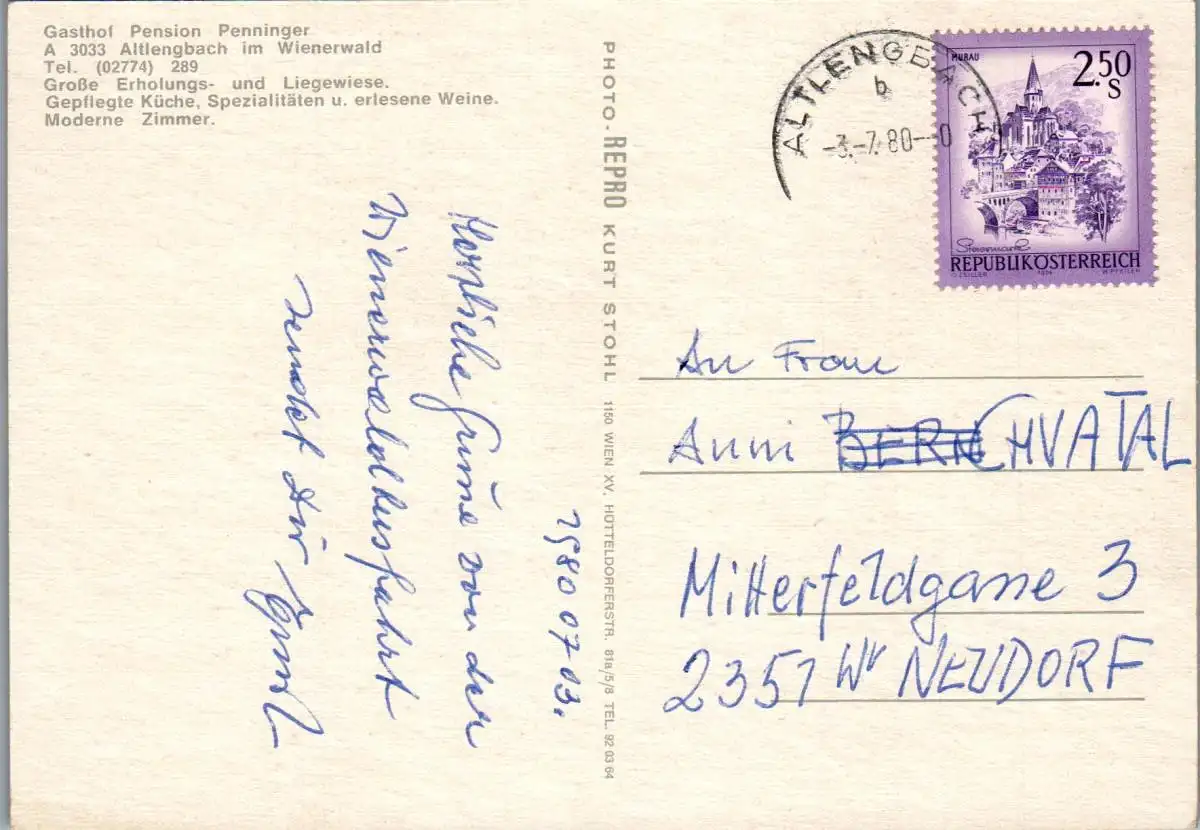 Gasthof Pension Penninger
A 3033 Altlengbach im Wienerwald
Tel. (02774) 289
Große Erholungs- und Liegewiese.
Gepflegte Küche, Spezialitäten u. erlesene Weine.
Moderne Zimmer.
1980 07 03.
Herzliche Grüsse von der
Wienerwaldausfahrt
sendet Dir
PHOTO-REPRO KURT STOHL 1150 WIEN XV, HÜTTELDORFERSTR. 81a/5/8 TEL. 92 03 64
ALTLENGBACH
b
-3.-7.80--0
MURAU
2.50
S
Steiermark
REPUBLIK ÖSTERREICH
O. ZEILLER 1974 W. PFEILER
An Frau
Anni BERN CHVATAL
Mitterfeldgasse 3
2351 Wr NEUDORF